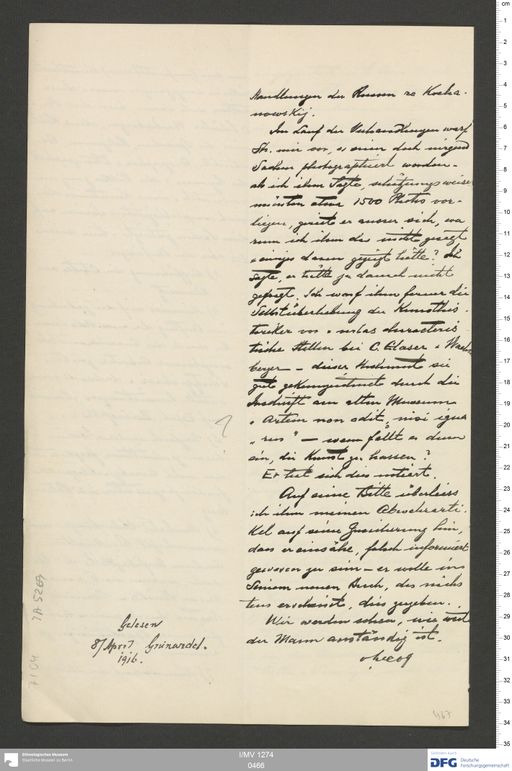 handlungen der Russen za Kocha-
nowskij.
Im Lauf der Verhandlungen warf
St. mir vor, es seien doch nirgend
Sachen photographiert worden -
als ich ihm sagte, schätzungsweise
müssten etwa 1500 Photos vor-
liegen, geriet er ausser sich, wa
rum ich ihm das nicht gesagt
u einiges davon gezeigt hätte? Ich
sagte, er hätte ja danach nicht
gefragt. Ich warf ihm ferner die
Selbstüberhebung der Kunsthis-
toriker vor u
tische Stellen bei C. Glaser u
- dieser Hochmut sei
gut gekennzeichnet durch die
Inschrift am alten Museum
"Artem non odit, nisi igna
"rus" - wem fällt es denn
ein, die Kunst zu hassen?
Er hat sich dies notiert.
Auf seine Bitte überliess
ich ihm meinen Abwehrarti-
kel auf seine Zusicherung hin,
dass er einsähe, falsch informiert
gewesen zu sein - er wolle im
Seinem neuen Buch, das nächs
tens erscheint, dies zugeben.
Wir werden sehen, wie weit
der Mann anständig ist.
?
Gelesen
8/ April Grünwedel.
1916.
IA 5269
71 04
467
Ethnologisches Museum
Staatliche Museen zu Berlin
I/MV 1274
0466
Gefördert durch
DFG Deutsche
Forschungsgemeinschaft
cm
1
2
3
4
5
6
7
8
9
10
11
12
13
14
15
16
17
18
19
20
21
22
23
24
25
26
27
28
29
30
31
32
33
34
35